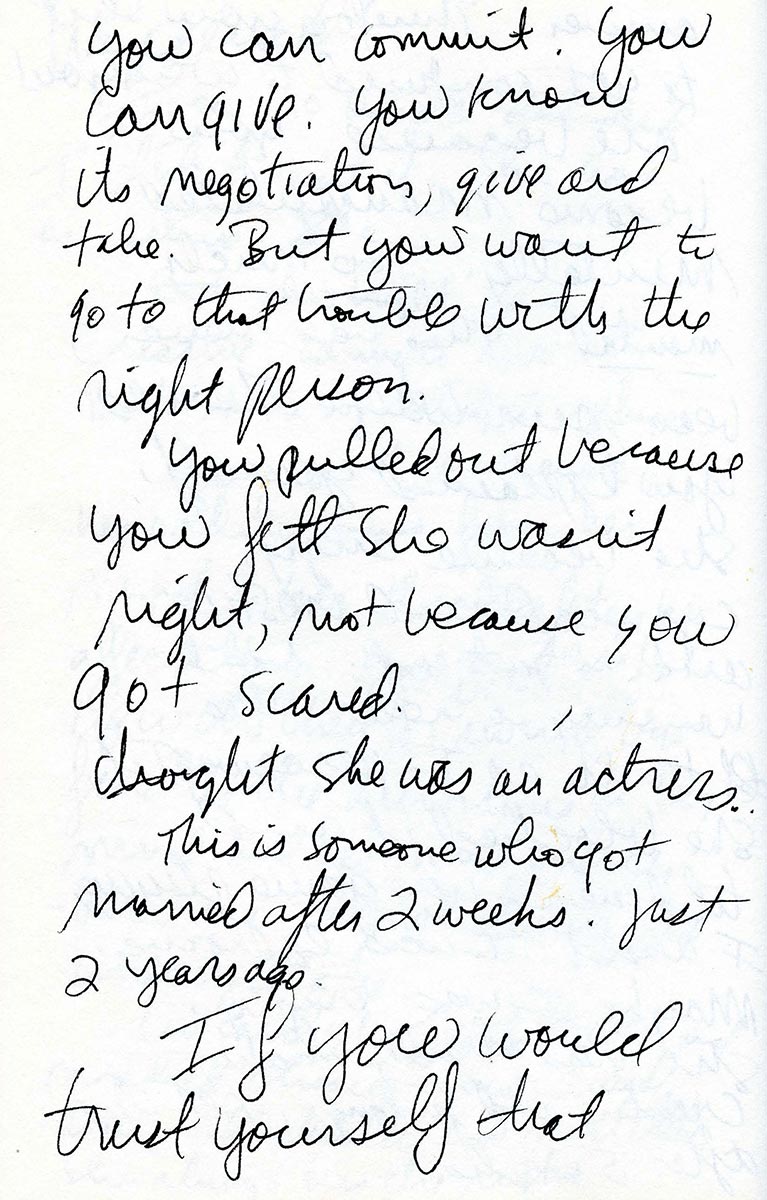 You can commit. You
can give. You know
its negotiation, give and
take. But you want to
go to that trouble with the
right person.
You pulled out because
you felt she wasn't
right, not because you
got scared.
she was an actress..
This is someone who got
married after 2 weeks. Just
2 years ago.
If you would
trust yourself that